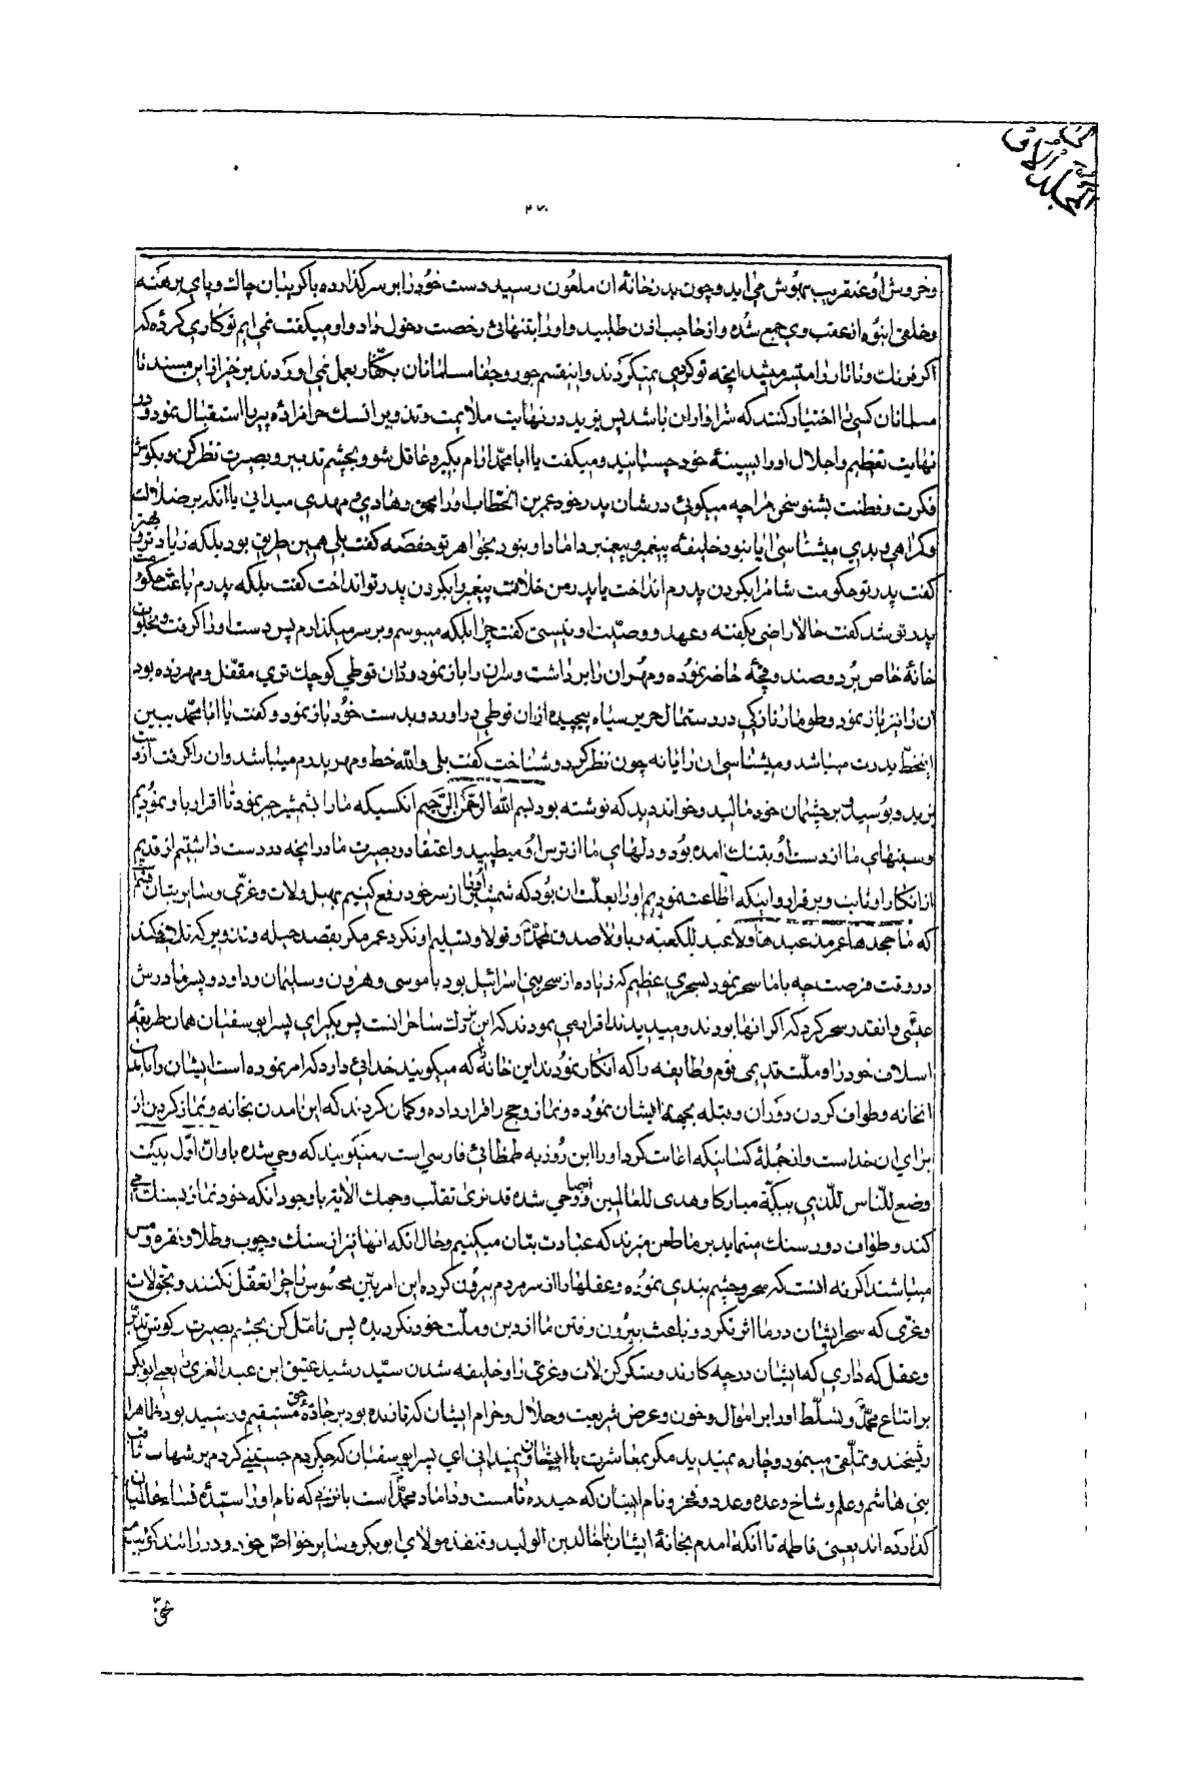 المجلد الاول
۲۷۰
و خروش او عنقریب بیهوش می اید و چون بدر خانهٔ ان ملعون رسید دست خود را بر سر گذارده با کریبان چاك و پای برهنه
و خلقی انبوه از عقب وی جمع شده و از حاجب اذن طلبید و او را بتنهائی رخصت دخول داد و او میکفت نمی ایم تو کاری کرده که
اکر فرنك و تاتار را میسر میشد انچه تو کردی نمیکردند و اینقسم جور و جفا مسلمانان بکفار بعمل نمی اوردند برخیز از این مسند تا
مسلمانان کسی را اختیار کنند که سزاوار ان باشد پس یزید در نهایت ملایمت و تذویر انسك حرامزاده پیر را استقبال نمود و در
نهایت تعظیم و اجلال او را بسینهٔ خود چسبانید و میکفت یا ابا محمد ارام بکیر و عاقل شو و بچشم تدبیر و بصیرت نظر کن و بکوش
فکرت و فطنت بشنو سخن مرا چه میکوئی در شان پدر خود عمر بن الخطاب او را محق و هادی و مهدی میدانی یا انکه بر ضلالت
و کمراهی و بدی میشناسی ایا نبود خلیفهٔ پیغمبر و پیغمبر داماد او نبود بخواهر تو حفصه کفت بلی همین طریق بود بلکه زیادتر و بهتر
کفت پدر تو حکومت شام را بکردن پدرم انداخت یا پدر من خلافت پیغمبر را بکردن پدر تو انداخت کفت بلکه پدرم باعث حکومت
پدر تو شد کفت حالا راضی بکفته و عهد و وصیت او نیستی کفت چرا بلکه میبوسم و بر سر میکذارم پس دست او را کرفت و بخلوت
خانهٔ خاص برد و صندوقچهٔ حاضر نموده و مهر ان را برداشت و سر ان را باز نمود و از ان قوطی کوچك تری مقفل و مهر زده بود
ان را نیز باز نمود و طومار نازکی در دستمال حریر سیاه پیچیده از ان قوطی در اورد و بدست خود باز نمود و کفت یا ابا محمد ببین
اینخط پدرت میباشد و میشناسی ان را یا نه چون نظر کرد و شناخت کفت بلی والله خط و مهر پدرم میباشد و ان را کرفت از دست
یزید و بوسید و بر چشمان خود مالید و خواند دید که نوشته بود بسم الله الرحمن الرحیم انکسیکه ما را بشمشیر جبر نمود تا اقرار باو نمودیم
و سینهای ما از دست او بتنك امده بود و دلهای ما از ترس او میطپید و اعتقاد و بصیرت ما در انچه در دست داشتیم از قدیم
از انکار او ثابت و برقرار و اینکه اطاعت نمودیم او را بعلت ان بود که شمشیر او را از سر خود رفع کنیم بهبل و لات و عزی و سایر بتان قسم
که ما جحدها عمر مذ عبدها ولا عبد للکعبة ربا ولا صدق لمحمد قولا و تسلیم او نکرد عمر مکر بقصد حیله و تذویر که تلافی کند
در وقت فرصت چه با ما سحر نمود بسحری عظیم که زیاده از سحر بنی اسرائیل بود با موسی و هرون و سلیمان و داود و پسر مادرش
عیسی و انقدر سحر کرد که اکر انها بودند و میدیدند اقرار می نمودند که این بزرك ساحرانست پس بکیر ای پسر ابو سفیان همان طریقهٔ
اسلاف خود را و ملت قدیمی قوم و طایفه را که انکار نمودند این خانهٔ را که میکویند خدائی دارد که امر نموده است ایشان را بامدن
انخانه و طواف کردن دوران و قبله بجهة ایشان نموده و نماز و حج را قرار داده و کمان کردند که این امدن بخانه و نماز کردن از
برای ان خداست و از جملهٔ کسانیکه اعانت کرد او را ابن روزبه طمطانی فارسی است میکویند که وحی شده باو ان اول بیت
وضع للناس للذی ببکة مبارکا و هدی للعالمین و ایضا وحی شده قد نری تقلب وجهك الایة با وجود انکه خود نماز بسنك می
کند و طواف دور سنك مینماید بر ما طعن میزند که عبادت بتان میکنیم و حال انکه انها نیز از سنك و چوب و طلا و نقره و مس
میباشند اکر نه انست که سحر و چشم بندی نموده و عقلها را از سر مردم بیرون کرده این امر بین محسوس را چرا تعقل نکنند و بحق لات
و عزی که سحر ایشان در ما اثر نکرد و باعث بیرون رفتن ما از دین و ملت خود نکردیده پس تامل کن بچشم بصیرت
و عقل که داری که ایشان در چه کارند و شکر کن لات و عزی را و خلیفه شدن سید رشید عتیق ابن عبد العزی را یعنی ابو بکر
بر اتباع محمد و تسلط او را بر اموال و خون و عرض شریعت و حلال و حرام ایشان که تا زنده بود بر جادهٔ حق مستقیم و رشید بود ظاهرا
ریشخند و تملقی مینمود و چاره نمیدید مکر بمعاشرت با ایشان نمیدانی ای پسر ابو سفیان که چکردم جستنی کردم بر شهاب ثاقب
بنی هاشم و علم و شاخ و عده و عدد و فخر و نام ایشان که حیدره نامست و داماد محمد است بانزنی که نام او را سیدهٔ نساء عالمیان
کذارده اند یعنی فاطمه تا انکه امدم بخانهٔ ایشان با خالد بن الولید و قنفذ مولای ابو بکر و سایر خواص خود و در را تند کوبیدم